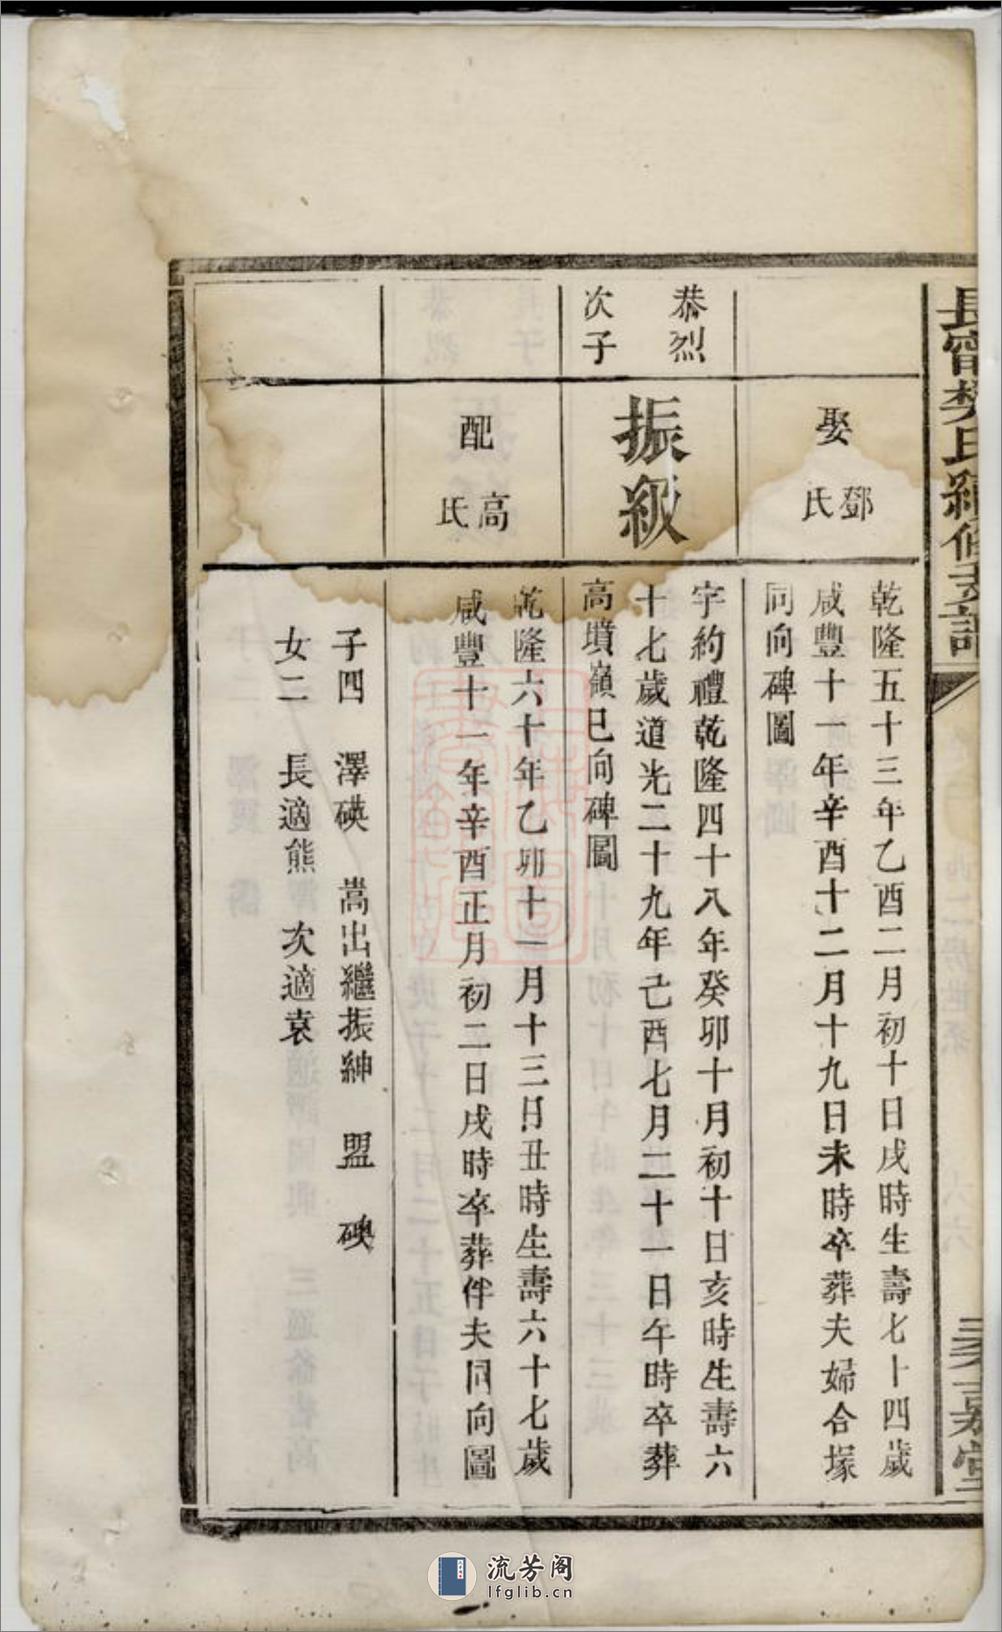 長甯樊氏續修支譜
嘉堂
娶鄧氏
乾隆五十三年乙酉二月初十日戌時生壽七十四歲
咸豐十一年辛酉十二月十九日未時卒葬夫婦合塚
同向碑圖
恭烈
次子
振級
字約禮乾隆四十八年癸卯十月初十日亥時生壽六
十七歲道光二十九年己酉七月二十一日午時卒葬
高墳嶺巳向碑圖
配高氏
乾隆六十年乙卯十一月十三日丑時生壽六十七歲
咸豐十一年辛酉正月初二日戌時卒葬伴夫同向圖
子四 澤磺 嵩出繼振紳 盟 碘
女二 長適熊 次適袁
流芳阁
lfglib.cn